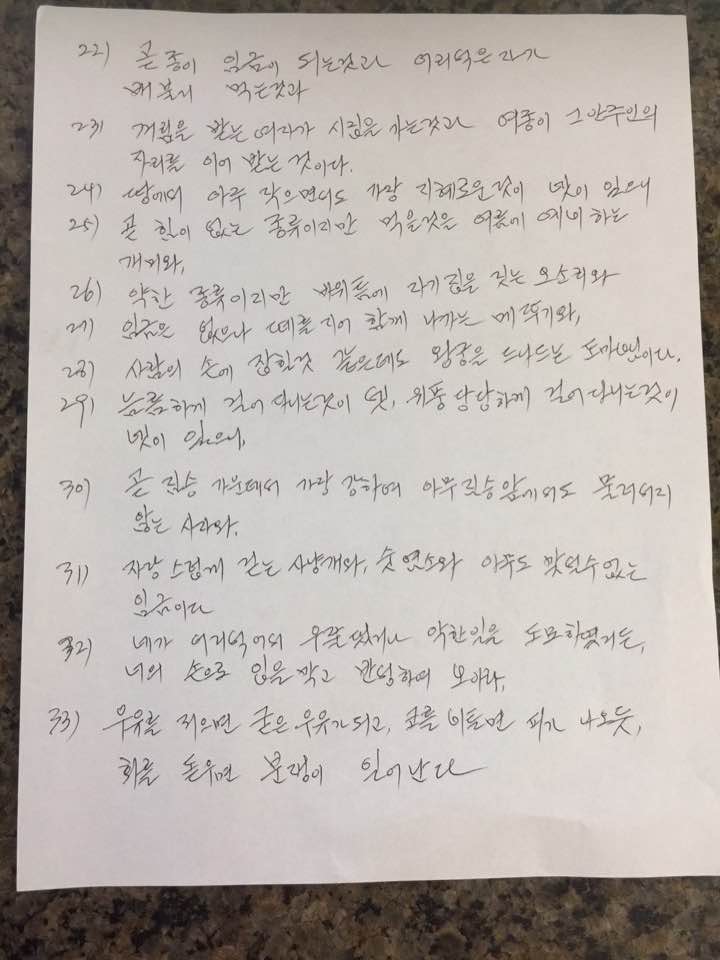 22) 곧 종이 임금이 되는것과 어리석은 자가
배불리 먹는것과
23) 꺼림을 받는 여자가 시집을 가는것과 여종이 그 안주인의
자리를 이어 받는 것이다.
24) 땅에서 아주 작으면서도 가장 지혜로운것이 넷이 있으니
25) 곧 힘이 없는 종류이지만 먹을것을 여름에 예비하는
개미와,
26) 약한 종류이지만 바위틈에 자기집을 짓는 오소리와
27) 임금은 없으나 떼를 지어 함께 나가는 메뚜기와,
28) 사람의 손에 잡힐것 같은데도 왕궁을 드나드는 도마뱀이다.
29) 늠름하게 걸어 다니는것이 셋, 위풍당당하게 걸어 다니는것이
넷이 있으니,
30) 곧 짐승 가운데서 가장 강하여 아무 짐승 앞에서도 물러서지
않는 사자와,
31) 자랑스럽게 걷는 사냥개와, 숫염소와 아무도 맞설수 없는
임금이다
32) 네가 어리석어서 우쭐댔거나 악한일을 도모하였거든,
너의 손으로 입을 막고 반성하여 보아라,
33) 우유를 저으면 굳은 우유가 되고, 코를 비틀면 피가 나오듯,
화를 돋우면 분쟁이 일어난다